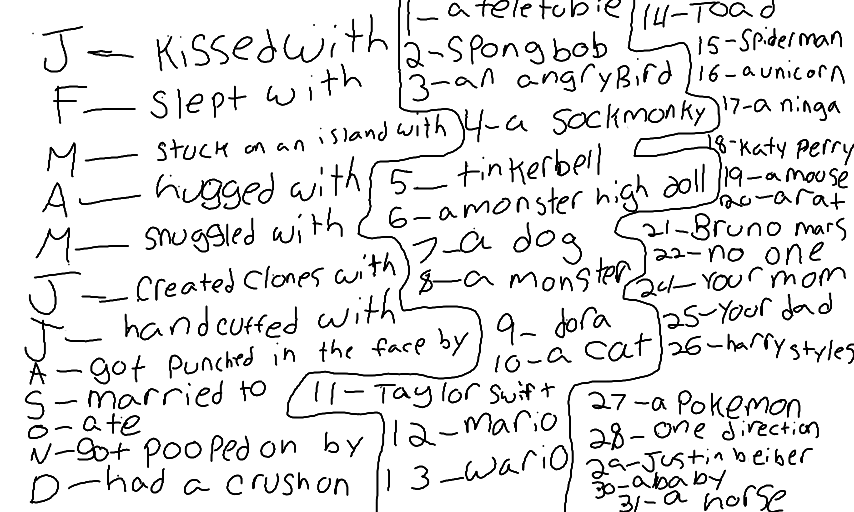 J- kissed with
F- slept with
M- stuck on an island with
A- hugged with
M- snuggled with
J- created clones with
J- handcuffed with
A- got punched in the face by
S- married to
O- ate
N- got pooped on by
D- had a crush on
1- a teletubie
2- Spongbob
3- an angry Bird
4- a sockmonky
5- tinkerbell
6- a monster high doll
7- a dog
8- a monster
9- dora
10- a cat
11- Taylor Swift
12- mario
13- wario
14- Toad
15- Spiderman
16- a unicorn
17- a ninga
18- Katy Perry
19- a mouse
20- a rat
21- Bruno mars
22- no one
24- Your mom
25- Your dad
26- harry styles
27- a Pokemon
28- one direction
29- Justin beiber
30- a baby
31- a horse